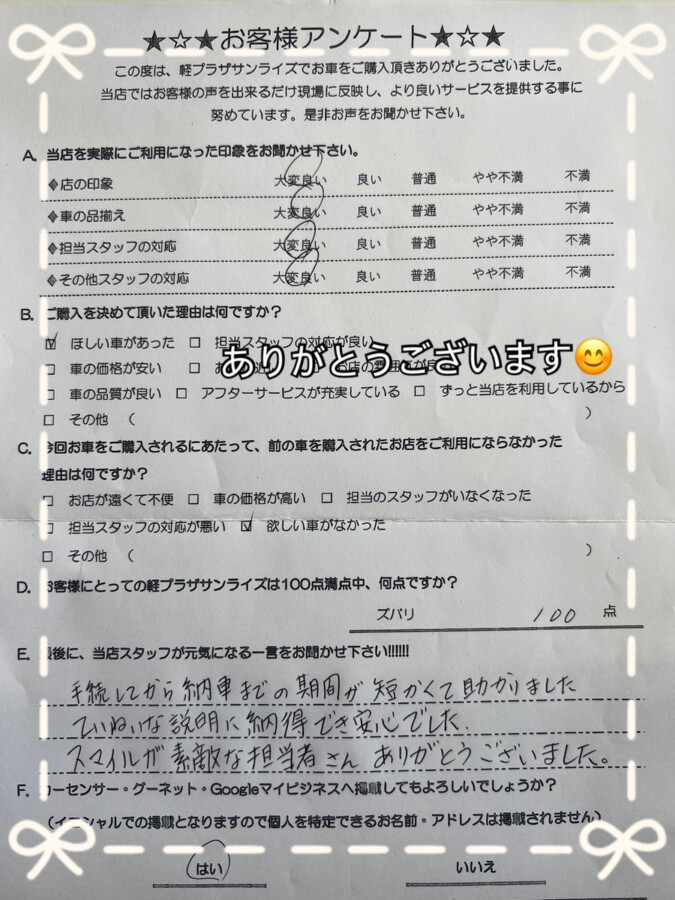 ★☆★お客様アンケート★☆★
この度は、軽プラザサンライズでお車をご購入頂きありがとうございました。
当店ではお客様の声を出来るだけ現場に反映し、より良いサービスを提供する事に
努めています。是非お声をお聞かせ下さい。
A. 当店を実際にご利用になった印象をお聞かせ下さい。
◆店の印象 大変良い 良い 普通 やや不満 不満
◆車の品揃え 大変良い 良い 普通 やや不満 不満
◆担当スタッフの対応 大変良い 良い 普通 やや不満 不満
◆その他スタッフの対応 大変良い 良い 普通 やや不満 不満
B. ご購入を決めて頂いた理由は何ですか？
☑ ほしい車があった □ 担当スタッフの対応が良い
ありがとうございます😊
□ 車の価格が安い □
□ 車の品質が良い □ アフターサービスが充実している □ ずっと当店を利用しているから
□ その他 （ ）
C. 今回お車をご購入されるにあたって、前の車を購入されたお店をご利用にならなかった
理由は何ですか？
□ お店が遠くて不便 □ 車の価格が高い □ 担当のスタッフがいなくなった
□ 担当スタッフの対応が悪い ☑ 欲しい車がなかった
□ その他 （ ）
D. お客様にとっての軽プラザサンライズは100点満点中、何点ですか？
ズバリ 100 点
E. 最後に、当店スタッフが元気になる一言をお聞かせ下さい!!!!!!
手続してから納車までの期間が短かくて助かりました
ていねいな説明に納得でき安心でした.
スマイルが素敵な担当者さんありがとうございました。
F. カーセンサー・グーネット・Googleマイビジネスへ掲載してもよろしいでしょうか？
（イニシャルでの掲載となりますので個人を特定できるお名前・アドレスは掲載されません）
はい いいえ